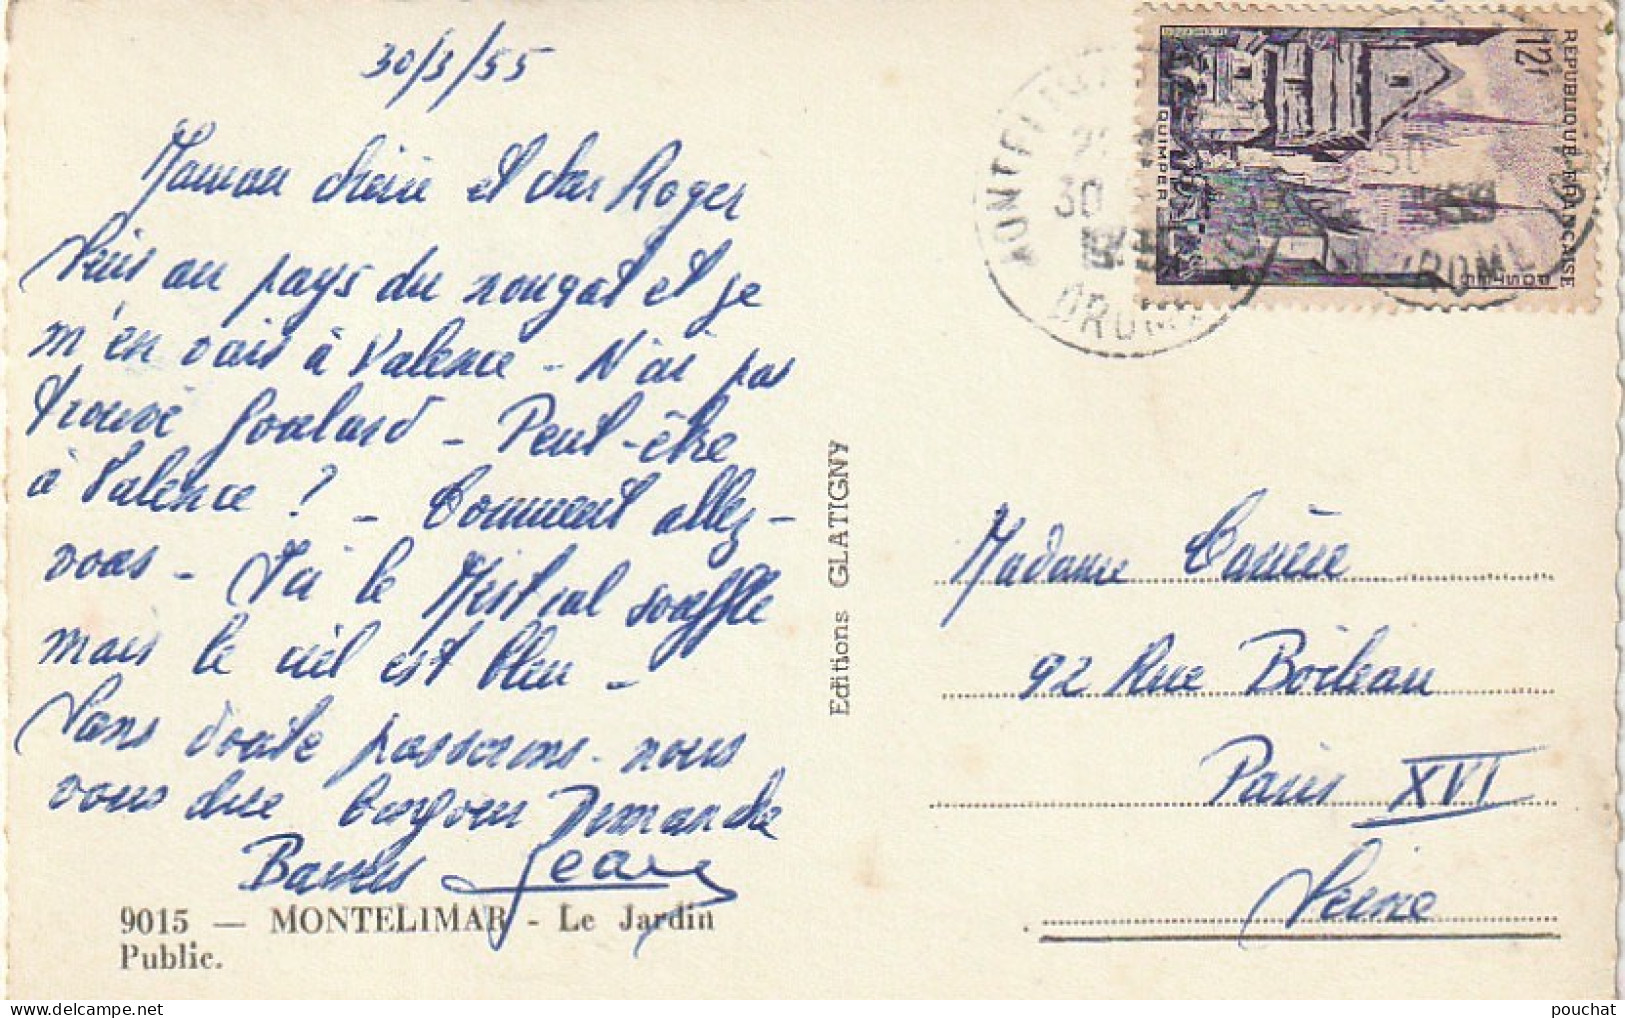 30/3/55
Maman chérie et cher Roger
Suis au pays du nougat et je
m'en vais à Valence - N'ai pas
trouvé Goulard - Peut-être
à Valence ? - Comment allez-
vous - Ici le Mistral souffle
mais le ciel est bleu -
Sans doute passerons-nous
vous dire bonjour Dimanche
Baisers Jean
9015 — MONTELIMAR - Le Jardin
Public.
Editions GLATIGNY
REPUBLIQUE FRANÇAISE
12f
QUIMPER
POSTES
MONTELIMAR
30
1955
DROME
30
DROME
Madame
92 Rue Boileau
Paris XVI
Seine
pouchat